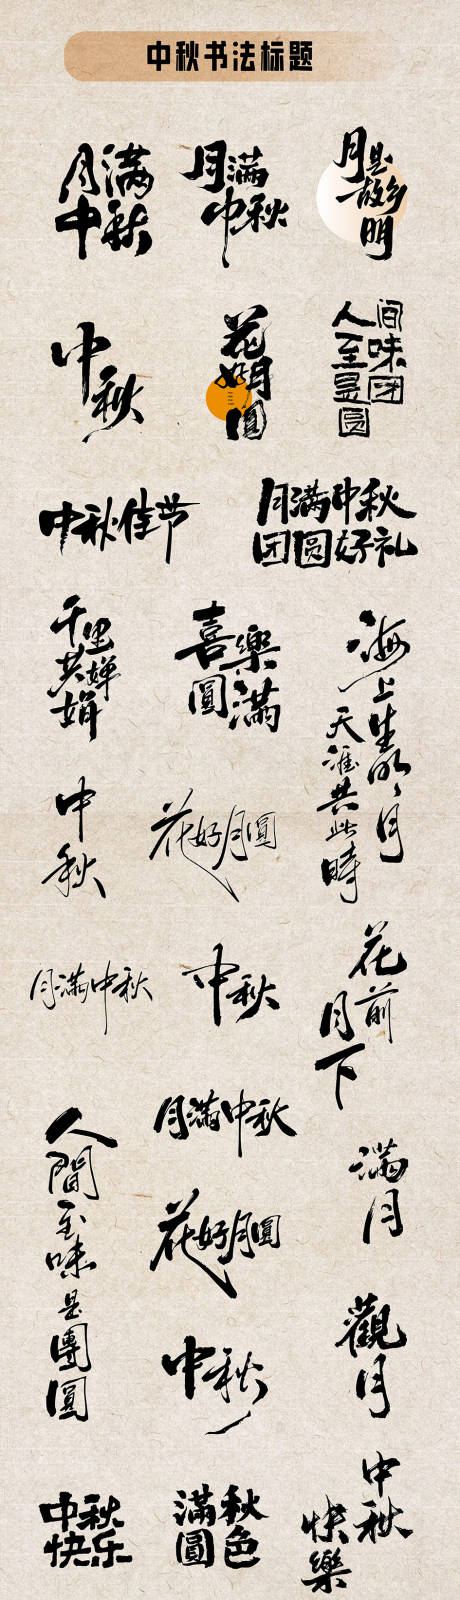 中秋书法标题
月满
中秋
月满
中秋
月是
故乡
明
中秋
花好月圆
人间
至味
是团圆
中秋佳节
月满中秋
团圆好礼
千里
共婵娟
喜樂
圓滿
海上生明月
天涯共此時
中秋
花好月圓
月满中秋
中秋
花前
月下
月满中秋
人間至味是團圓
花好月圓
满月
中秋
觀月
中秋
快乐
秋色
滿圓
中秋
快樂